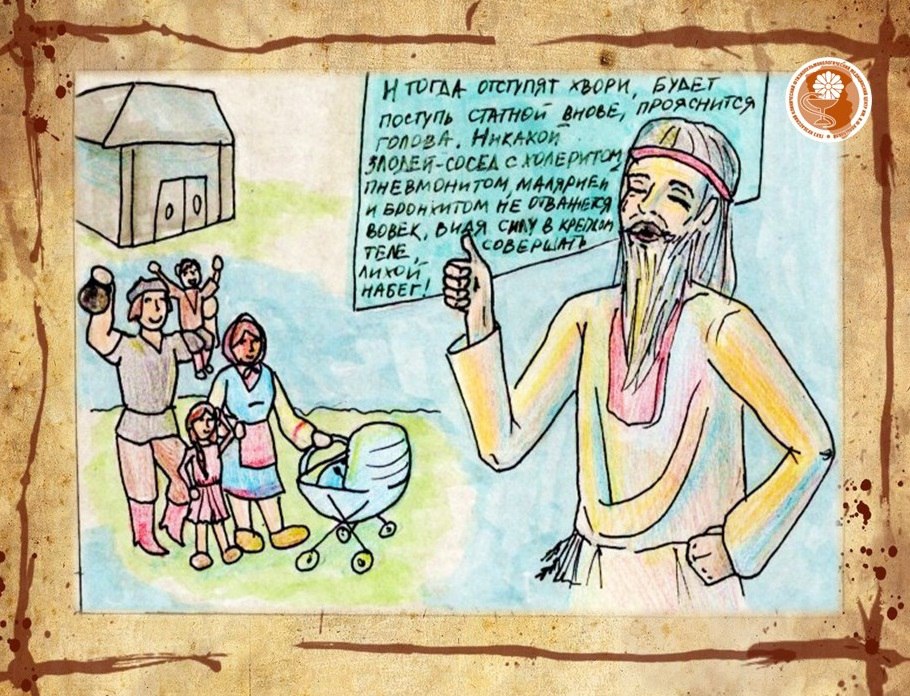 И ТОГДА ОТСТУПЯТ ХВОРИ, БУДЕТ
ПОСТУПЬ СТАТНОЙ ВНОВЕ, ПРОЯСНИТСЯ
ГОЛОВА. НИКАКОЙ
ЗЛОДЕЙ-СОСЕД С ХОЛЕРИТОМ,
ПНЕВМОНИТОМ, МАЛЯРИЕЙ
И БРОНХИТОМ НЕ ОТВАЖЕТСЯ
ВОВЕК, ВИДЯ СИЛУ В КРЕПКОМ
ТЕЛЕ, СОВЕРШАТЬ
ЛИХОЙ
НАБЕГ!